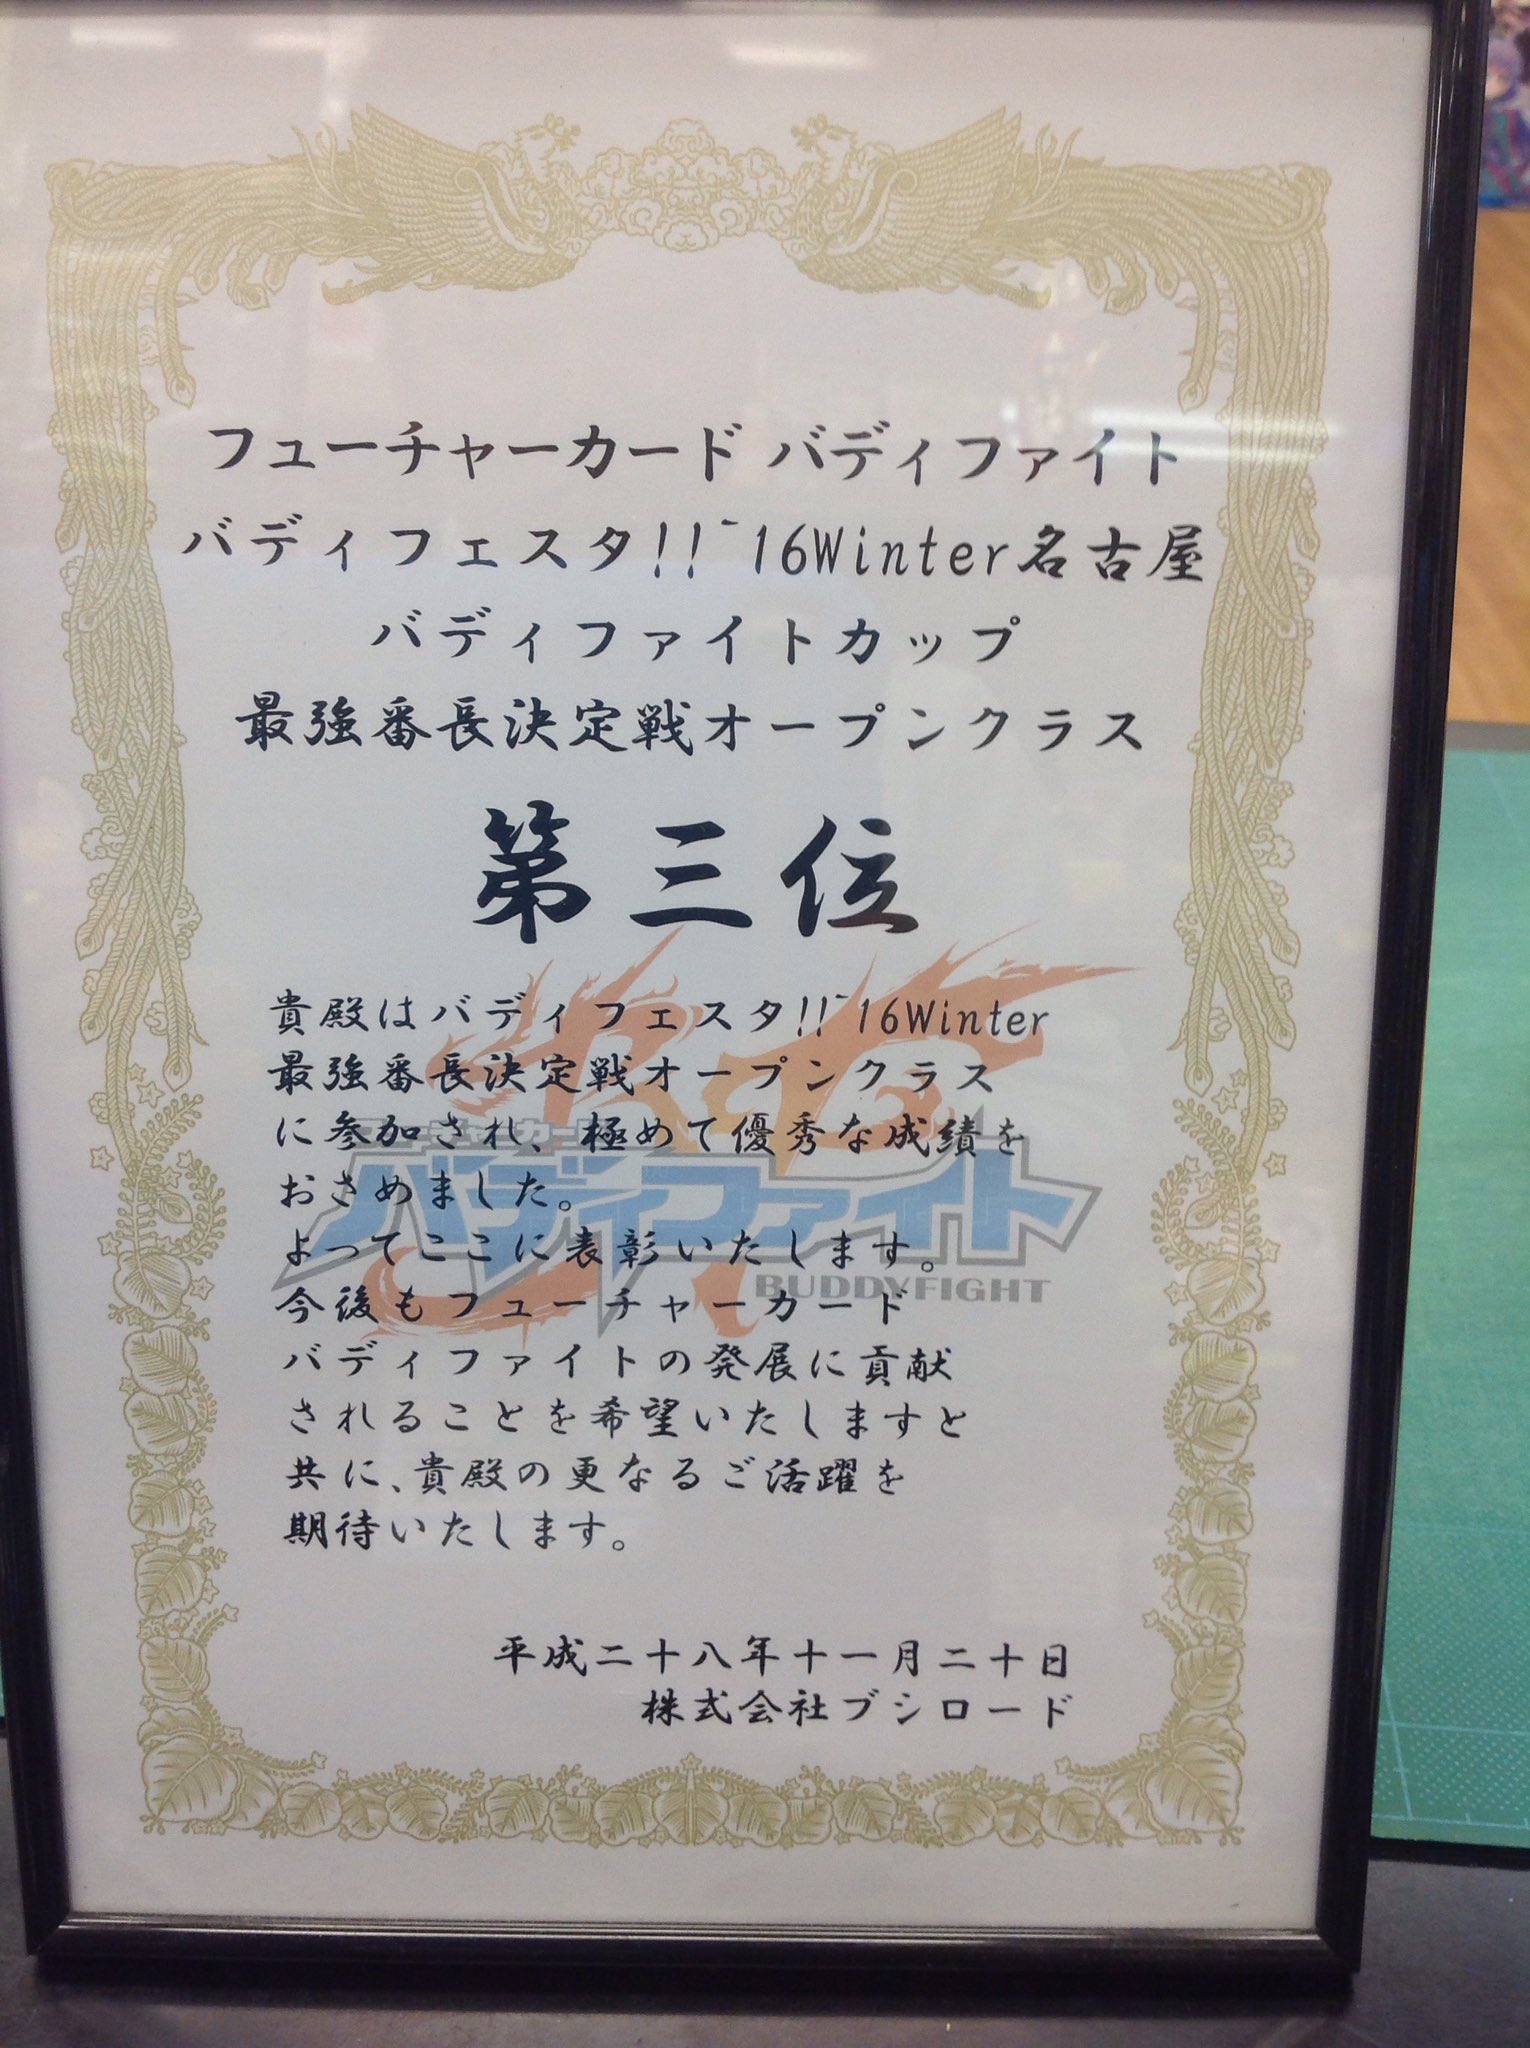 フューチャーカード バディファイト
バディフェスタ!!~16Winter名古屋
バディファイトカップ
最強番長決定戦オープンクラス
第三位
貴殿はバディフェスタ!!~16Winter
最強番長決定戦オープンクラス
に参加され、極めて優秀な成績を
おさめました。
よってここに表彰いたします。
今後もフューチャーカード
バディファイトの発展に貢献
されることを希望いたしますと
共に、貴殿の更なるご活躍を
期待いたします。
フューチャーカード
バディファイト
BUDDYFIGHT
平成二十八年十一月二十日
株式会社ブシロード